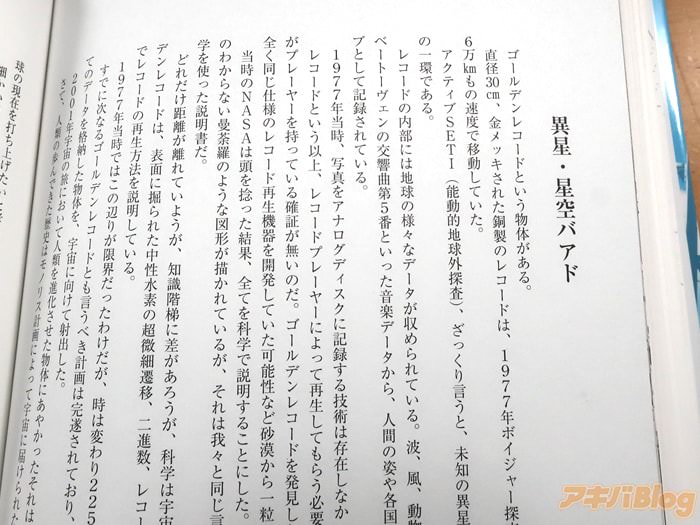 異星・星空バアド
ゴールデンレコードという物体がある。
直径30㎝、金メッキされた銅製のレコードは、1977年ボイジャー探
6万㎞もの速度で移動していた。
アクティブSETI（能動的地球外探査）、ざっくり言うと、未知の異星
の一環である。
レコードの内部には地球の様々なデータが収められている。波、風、動物
ベートーヴェンの交響曲第5番といった音楽データから、人間の姿や各国
ブとして記録されている。
1977年当時、写真をアナログディスクに記録する技術は存在しなか
レコードという以上、レコードプレーヤーによって再生してもらう必要
がプレーヤーを持っている確証が無いのだ。ゴールデンレコードを発見し
全く同じ仕様のレコード再生機器を開発していた可能性など砂漠から一粒
当時のNASAは頭を捻った結果、全てを科学で説明することにした。
のわからない曼荼羅のような図形が描かれているが、それは我々と同じ言
学を使った説明書だ。
どれだけ距離が離れていようが、知識階梯に差があろうが、科学は宇宙
デンレコードは、表面に掘られた中性水素の超微細遷移、二進数、レコー
でレコードの再生方法を説明している。
1977年当時ではこの辺りが限界だったわけだが、時は変わり225
すでに次なるゴールデンレコードとも言うべき計画は完遂されており、
てのデータを格納した物体を、宇宙に向けて射出した。
2001年宇宙の旅において人類を進化させた物体にあやかったそれは
さて、人類の歩んできた歴史はモノリス計画によって宇宙に届けられた
球の現在を打ち上げたいと
アキバBlog